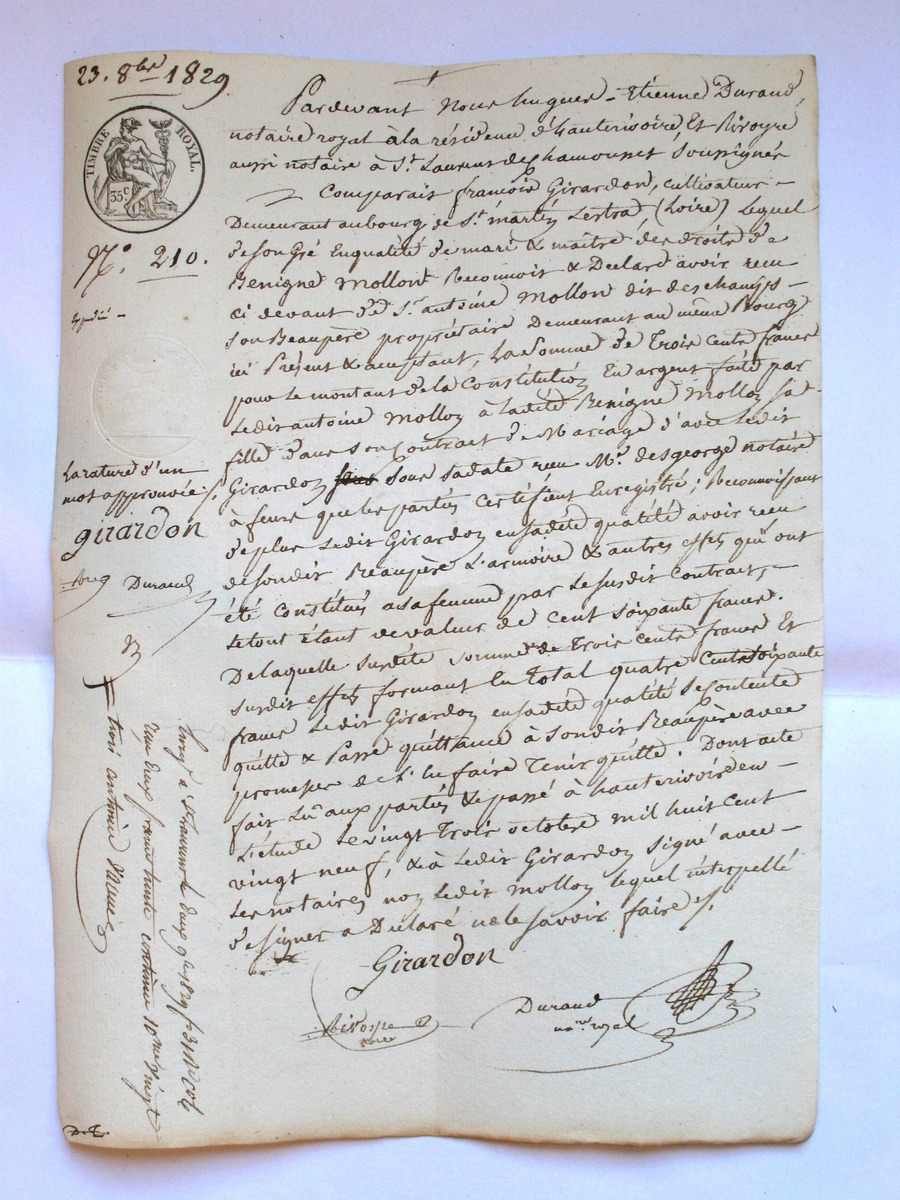 23. 8bre 1829.
TIMBRE ROYAL.
35c
N.° 210.
Expédié –
La rature d'un
mot approuvée /.
girardon
Durand
Pardevant Nous hugues-Etienne Durand,
notaire royal à la résidence d'hauterivoire, Et Rivoyre
aussi notaire à St. Laurent de Chamousset soussignés
Comparait françois Girardon, cultivateur –
Demeurant au bourg de St. martin Lestra, (Loire) Lequel
de son Gré En qualité de mari & maître des droits de
Benigne Mollon Reconnoit & Déclare avoir reçu
ci devant de Sr. antoine Mollon dit deschamps –
son Beaupère propriétaire Demeurant au même Bourg
ici Présent & acceptant, La Somme de Trois Cents francs
pour Le montant de la Constitution En argent faite par
Ledit antoine Mollon à Ladite Benigne Mollon sa
fille dans son Contrat de Mariage d'avec Ledit
Girardon sous sa date reçu Me. desgeorge notaire
à feurs que les parties Certifient Enregistré; Reconnoissant
de plus Ledit Girardon en sadite qualité avoir reçu
de sondit Beaupère L'armoire & autres effets qui ont
été Constitués a sa femme par Le susdit Contrat, –
Le tout étant de valeur de Cent soixante francs.
De laquelle susdite somme de Trois Cents francs Et
susdit effets formant En Total quatre Cents soixante
francs Ledit Girardon en sadite qualité Se Contente
quitte & Passe quittance à Sondit Beaupère avec
promesse de L'en faire Tenir quitte. Dont acte
fait Lu aux parties & passé à hauterivoire en –
L'étude Le vingt Trois octobre mil huit Cent
vingt neuf, & à Ledit Girardon Signé avec –
Les notaires non Ledit Mollon lequel interpellé
de signer a Déclaré ne le savoir faire /.
Girardon
Rivoyre
nore
Durand
nore. royal
Enrgé à St Laurent
reçu deux francs trente centimes 10me vingt
trois centimes
D.T.